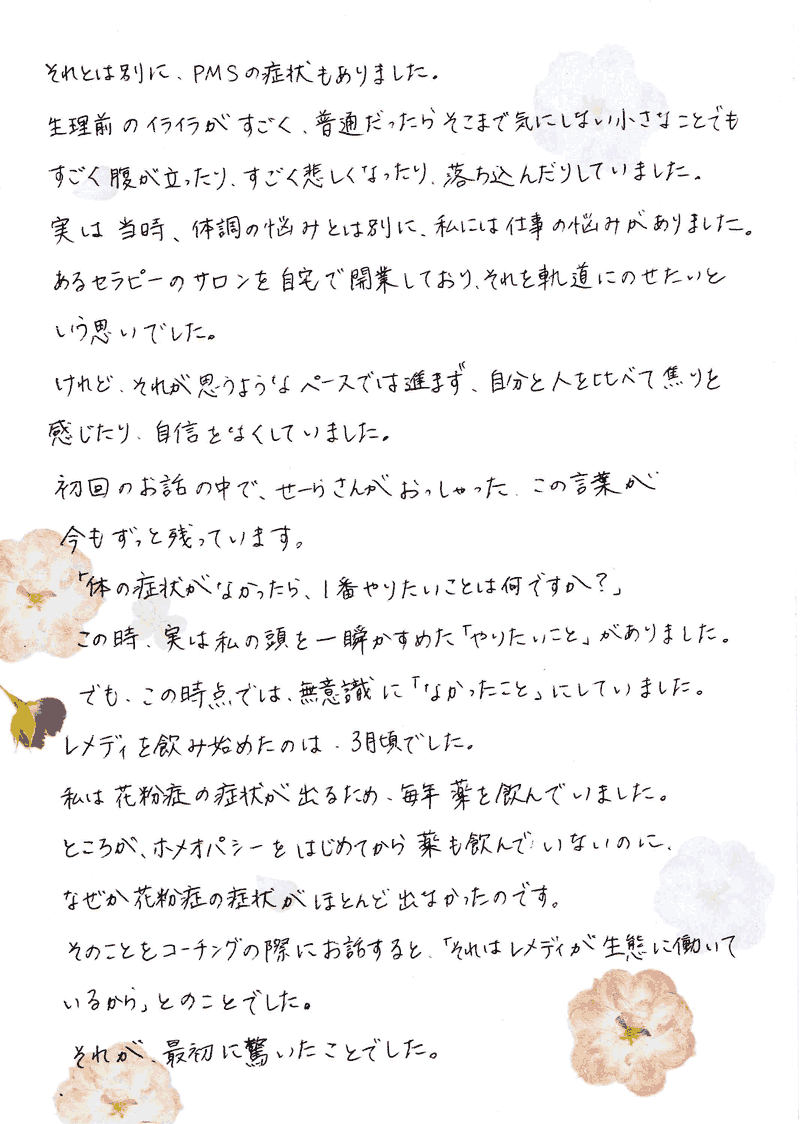 それとは別に、PMSの症状もありました。
生理前のイライラがすごく、普通だったらそこまで気にしない小さなことでも
すごく腹が立ったり、すごく悲しくなったり、落ち込んだりしていました。
実は当時、体調の悩みとは別に、私には仕事の悩みがありました。
あるセラピーのサロンを自宅で開業しており、それを軌道にのせたいと
いう思いでした。
けれど、それが思うようなペースでは進まず、自分と人を比べて焦りを
感じたり、自信をなくしていました。
初回のお話の中で、せーらさんがおっしゃった、この言葉が
今もずっと残っています。
「体の症状がなかったら、1番やりたいことは何ですか?」
この時、実は私の頭を一瞬かすめた「やりたいこと」がありました。
でも、この時点では、無意識に「なかったこと」にしていました。
レメディを飲み始めたのは、3月頃でした。
私は花粉症の症状が出るため、毎年薬を飲んでいました。
ところが、ホメオパシーをはじめてから薬も飲んでいないのに、
なぜか花粉症の症状がほとんど出なかったのです。
そのことをコーチングの際にお話すると、「それはレメディが生態に働いて
いるから」とのことでした。
それが、最初に驚いたことでした。